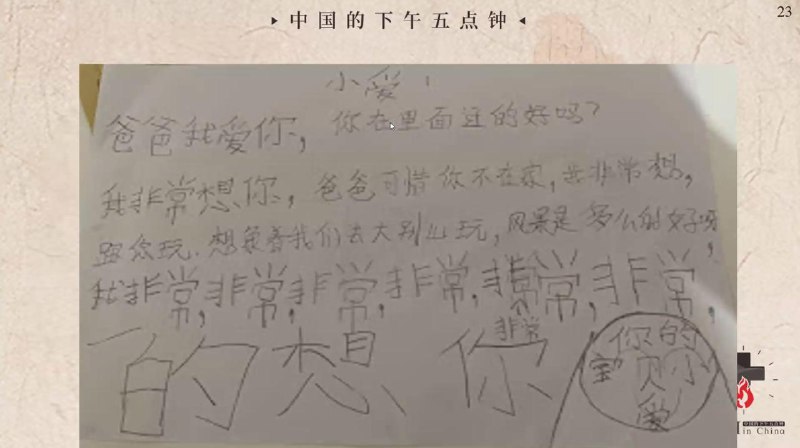 中国的下午五点钟
23
小爱,
爸爸我爱你, 你在里面过的好吗?
我非常想你, 爸爸可惜你不在家, 我非常想,
跟你玩, 想象着我们去大别山玩, 风景是多么的好呀,
我非常,非常,非常,非常,非常,非常,
非常
的想你
你的
宝贝小
爱!
in China